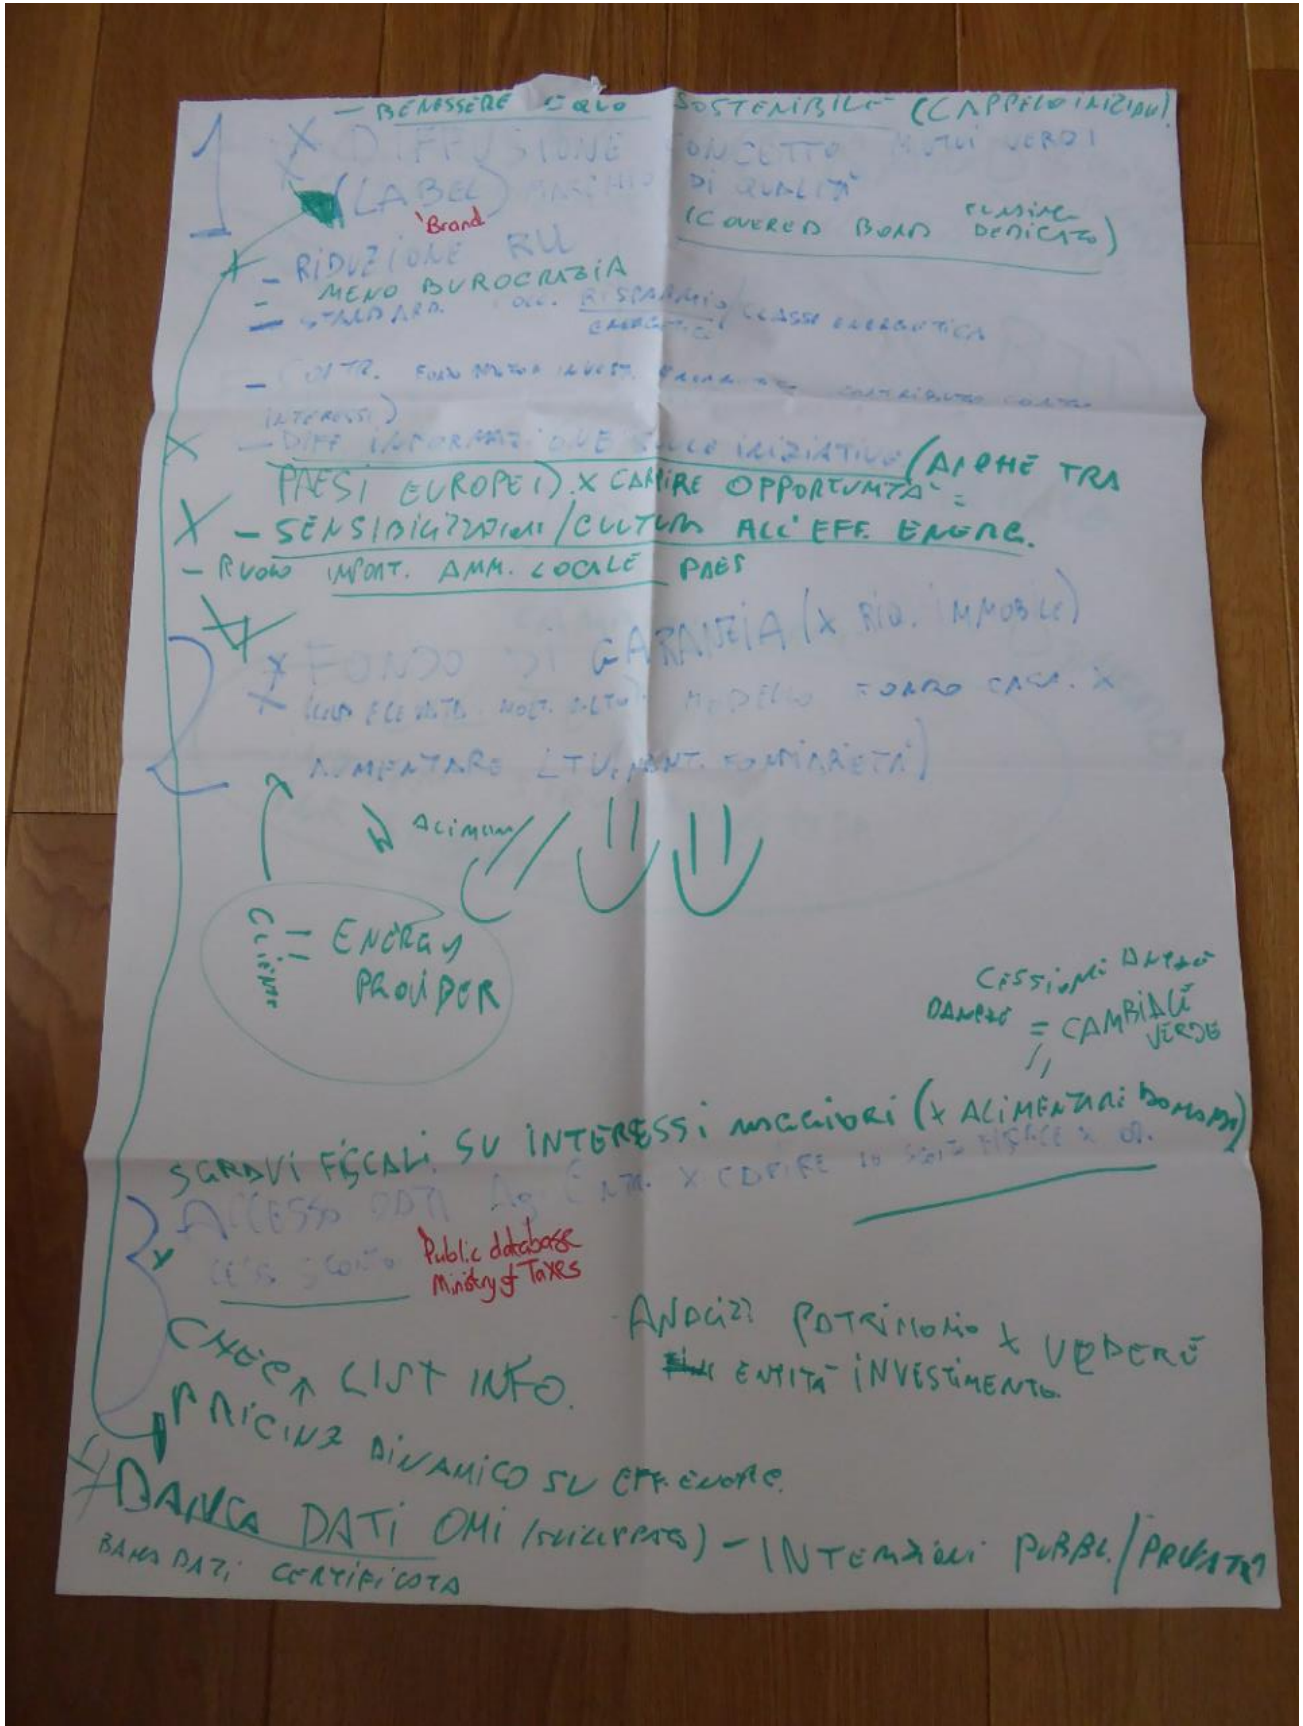 - BENESSERE EQUO SOSTENIBILE (CAPPELLO INIZIALE)
1 X DIFFUSIONE CONCETTO MUTUI VERDI
X (LABEL) MARCHIO DI QUALITÀ
"Brand
(COVERED BOND FUNDING DEDICATO)
X - RIDUZIONE RU
- MENO BUROCRAZIA
- STANDARD. DOC. RISPARMIO ENERGETICO / CLASSE ENERGETICA
- CONTR. INVEST. CONTRIBUTO CONTO
INTERESSI)
X - DIFF INFORMAZIONE SULLE INIZIATIVE (ANCHE TRA
PAESI EUROPEI) X CAPIRE OPPORTUNITÀ =
X - SENSIBILIZZAZIONI / CULTURA ALL'EFF. ENERG.
- RUOLO IMPORT. AMM. LOCALE PAES
X FONDO DI GARANZIA (X RIQ. IMMOBILE)
X MODELLO FONDO CASA. X
AUMENTARE LTV, MANT. FONDIARIETÀ)
CLIENTE = ENERGY
PROVIDER
CESSIONI ANCHE
BANCHE = CAMBIALE
VERDE
SGRAVI FISCALI SU INTERESSI MAGGIORI (X ALIMENTARE DOMANDA)
ACCESSO DATI AG. ENTR. X CAPIRE
Public database
Ministry of Taxes
CHECK LIST INFO.
ANALIZZ PATRIMONIO X VEDERE
ENTITÀ INVESTIMENTO
PRICING DINAMICO SU EFF. ENERG.
BANCA DATI OMI - INTERAZIONI PUBBL. / PRIVATO
BANCA DATI CERTIFICATA